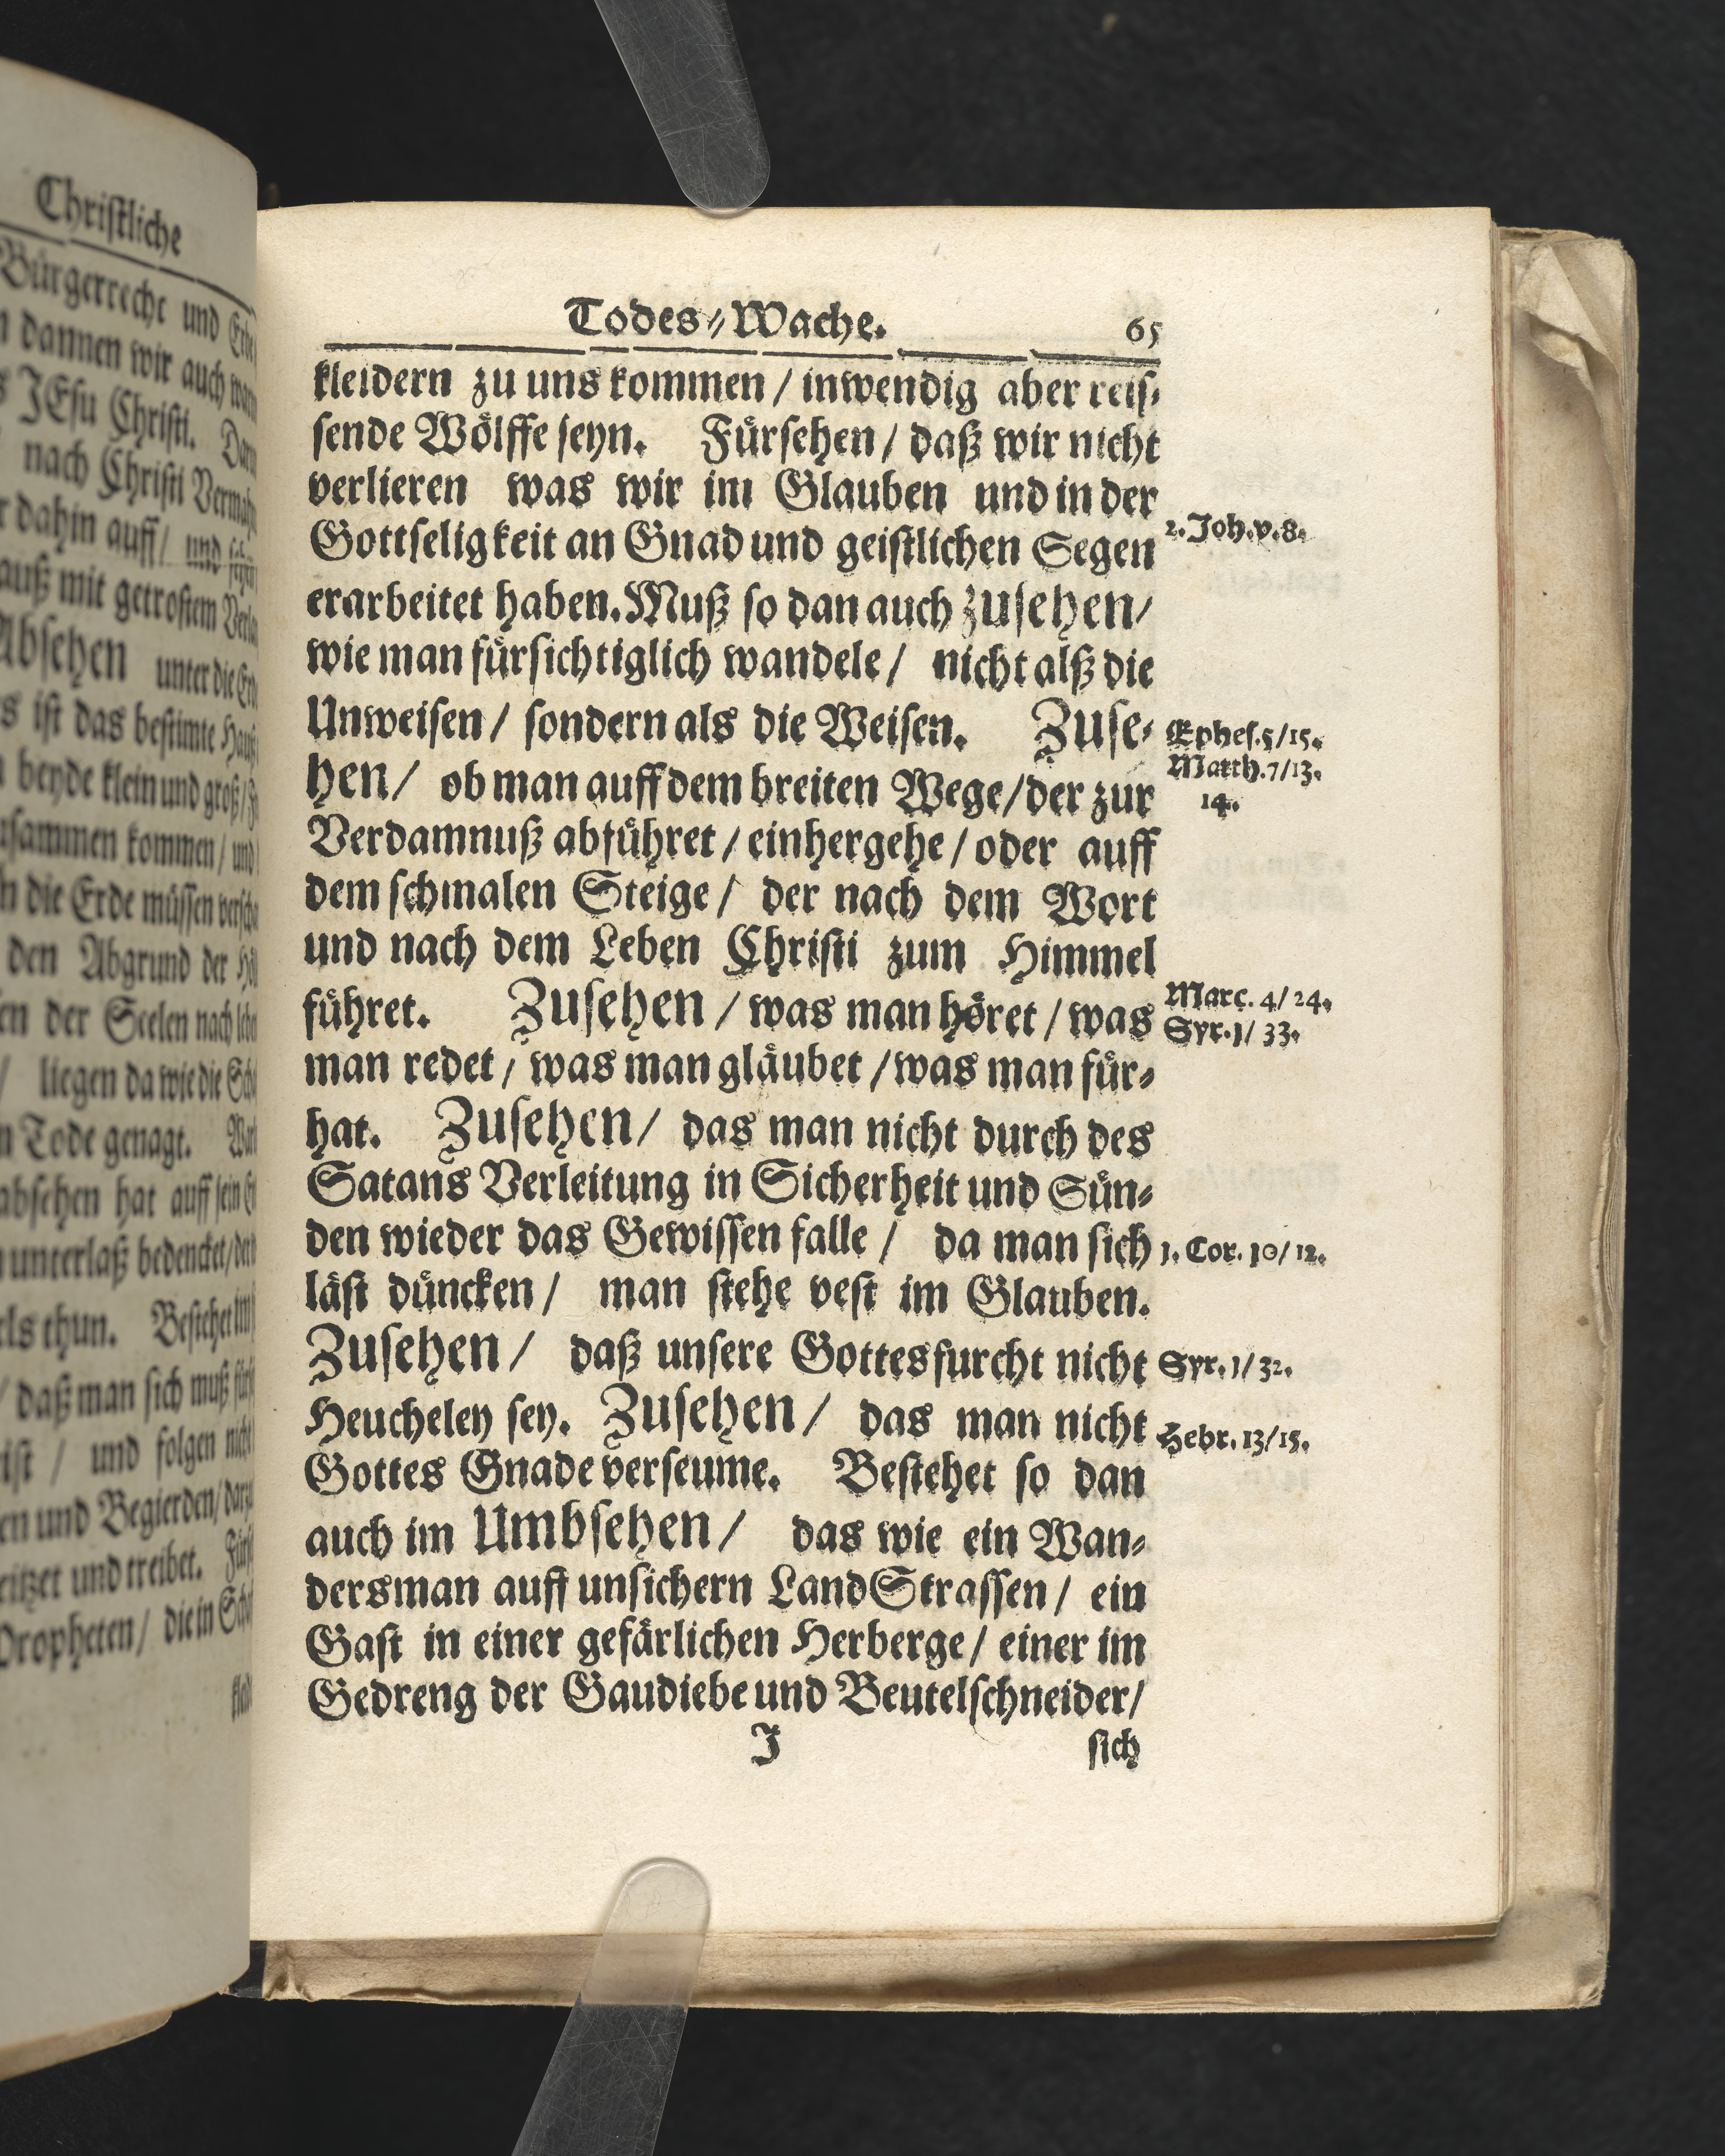 Christliche
Bürgerrecht und
dannen wir auch
JEsu Christi.
nach Christi
dahin auff / und
mit getrostem
Absehen unter die
ist das bestimte
beyde klein und groß /
kommen / und
die Erde müssen
den Abgrund der
der Seelen nach
/ liegen da wie die
Tode genagt.
hat auff sein
unterlaß bedencket /
thun. Bestehet im
/ daß man sich muß
/ und folgen
und Begierden /
und treibet.
Propheten / die in
Todes-Wache. 65
kleidern zu uns kommen / inwendig aber reis-
sende Wölffe seyn. Fürsehen / daß wir nicht
verlieren was wir im Glauben und in der
Gottseligkeit an Gnad und geistlichen Segen
2. Joh. v. 8.
erarbeitet haben. Muß so dan auch zusehen /
wie man fürsichtiglich wandele / nicht alß die
Unweisen / sondern als die Weisen. Zuse-
Ephes. 5/15.
hen / ob man auff dem breiten Wege / der zur
Matth. 7/13.
14.
Verdamnuß abführet / einhergehe / oder auff
dem schmalen Steige / der nach dem Wort
und nach dem Leben Christi zum Himmel
führet. Zusehen / was man höret / was
Marc. 4/24.
Syr. 1/33.
man redet / was man gläubet / was man für-
hat. Zusehen / das man nicht durch des
Satans Verleitung in Sicherheit und Sün-
den wieder das Gewissen falle / da man sich
1. Cor. 10/12.
läst düncken / man stehe vest im Glauben.
Zusehen / daß unsere Gottesfurcht nicht
Syr. 1/32.
Heucheley sey. Zusehen / das man nicht
Hebr. 13/15.
Gottes Gnade verseume. Bestehet so dan
auch im Umbsehen / das wie ein Wan-
dersman auff unsichern LandStrassen / ein
Gast in einer gefärlichen Herberge / einer im
Gedreng der Gaudiebe und Beutelschneider /
J sich